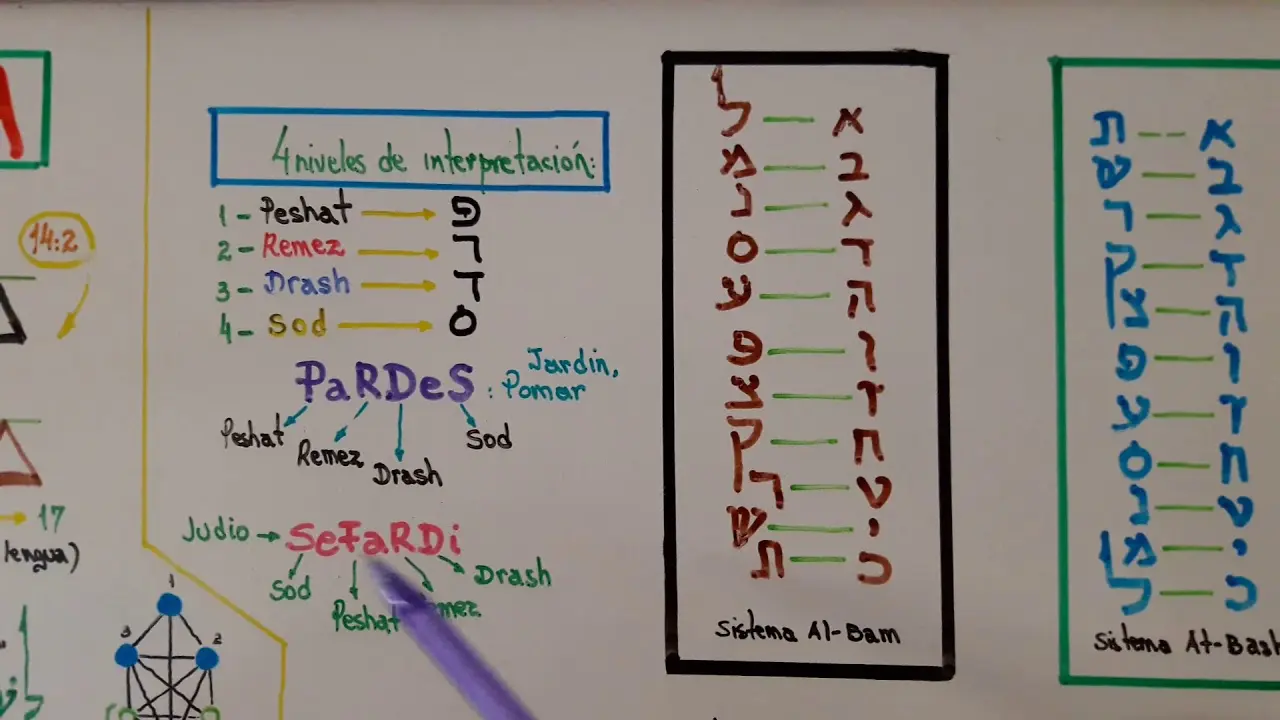 4 niveles de interpretación:
1- Peshat → פ
2- Remez → ר
3- Drash → ד
4- Sod → ס
PaRDeS : Jardín,
Pomar
Peshat
Remez
Drash
Sod
Judio → SeFaRDi
Sod
Peshat
Drash
14:2
→ 17
lengua)
1
3
2
ל — א
מ — ב
נ — ג
ס — ד
ע — ה
פ — ו
צ — ז
ק — ח
ר — ט
ש — י
ת — כ
Sistema Al-Bam
ת — א
ש — ב
ר — ג
ק — ד
צ — ה
פ — ו
ע — ז
ס — ח
נ — ט
מ — י
ל — כ
Sistema At-Bash